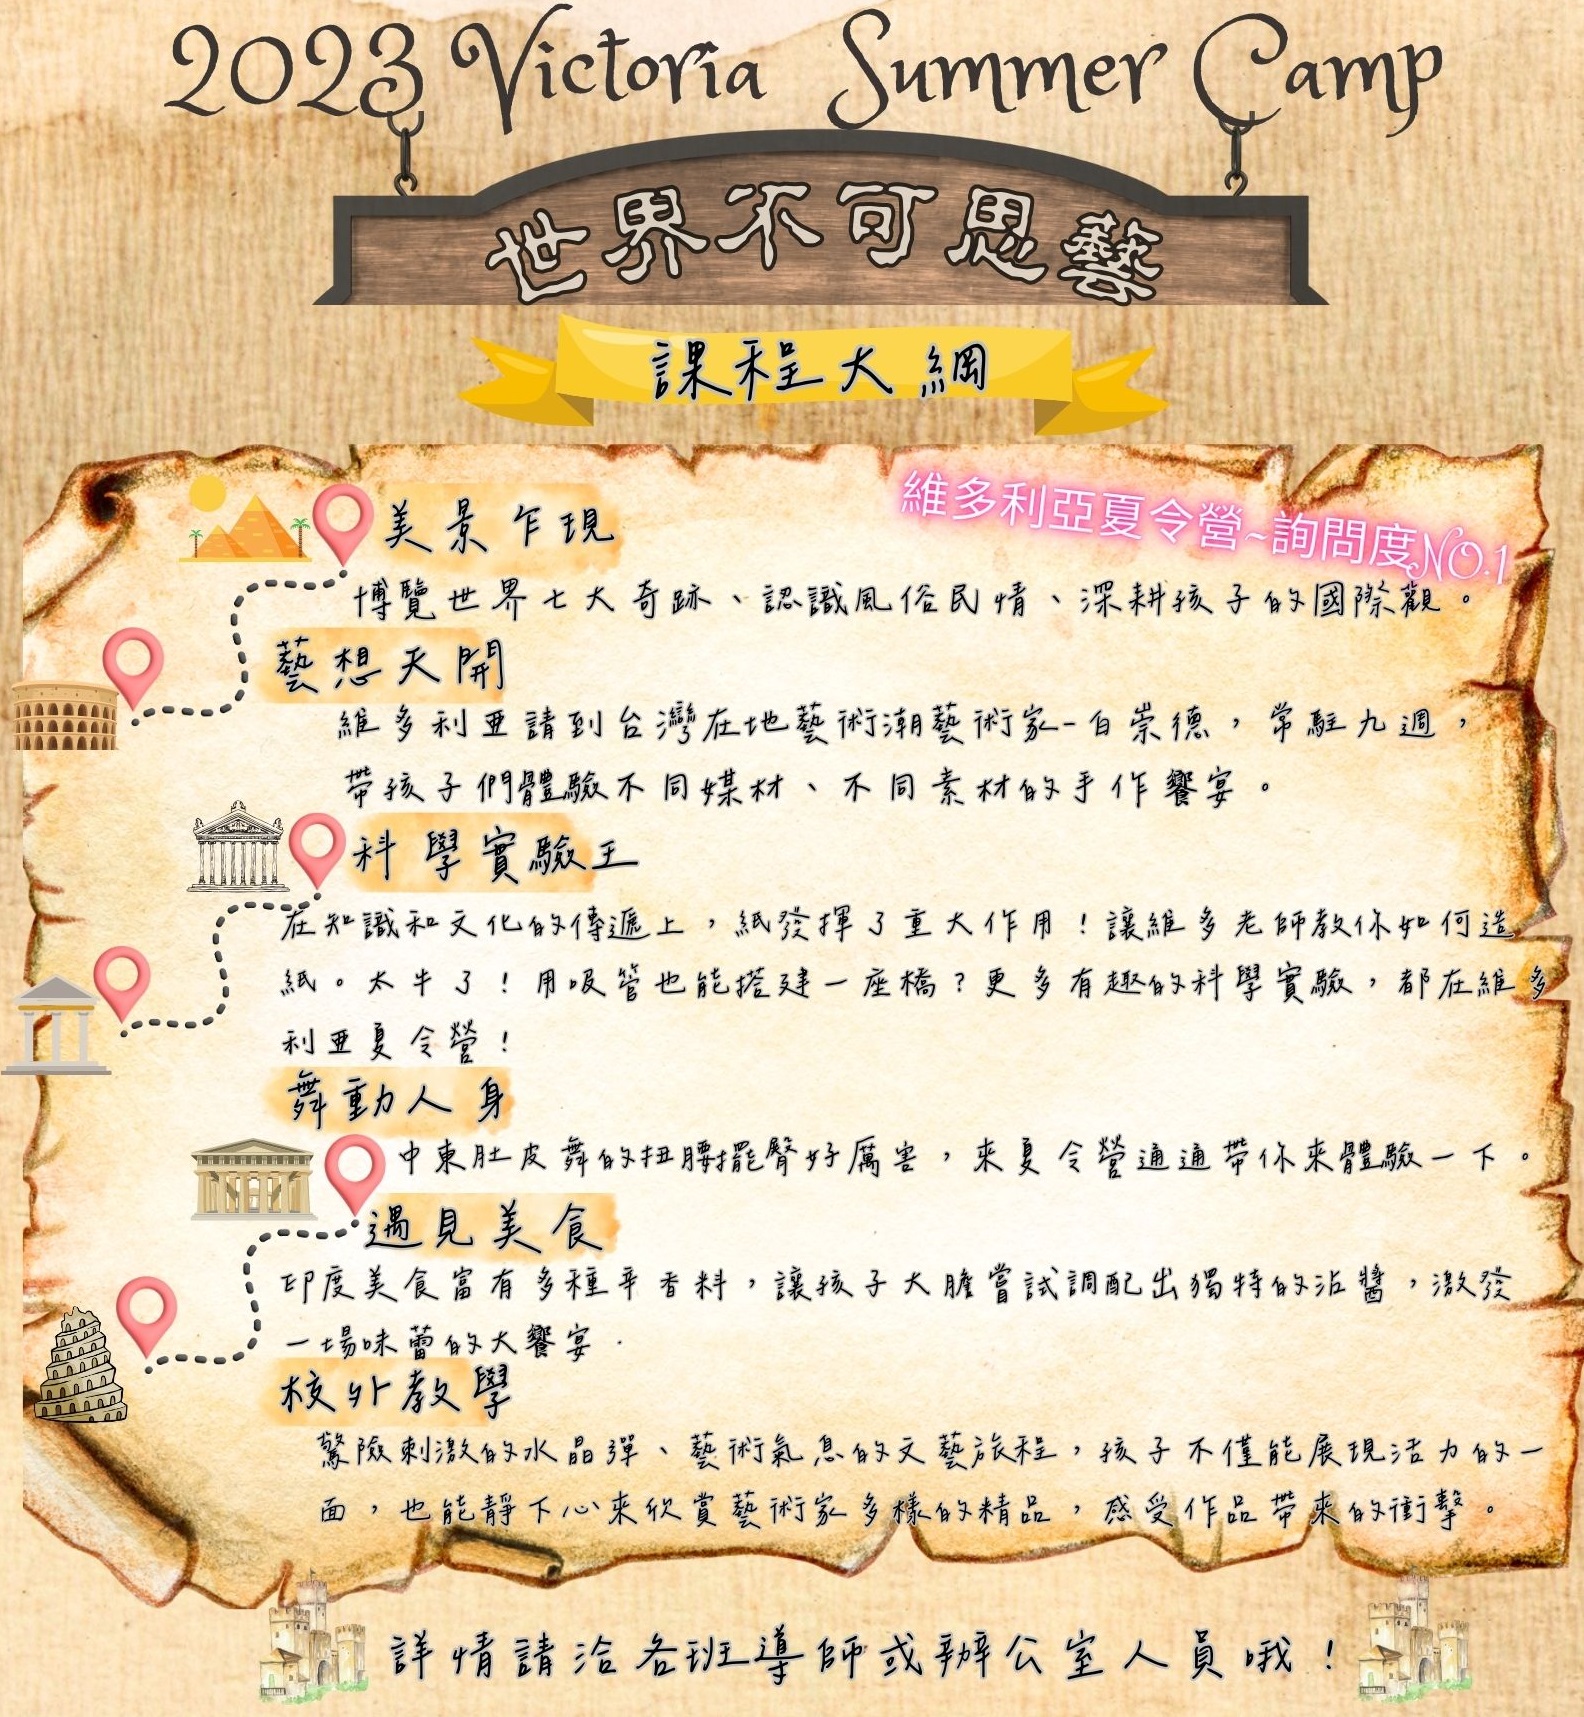 2023 Victoria Summer Camp
世界不可思藝
課程大綱
維多利亞夏令營~詢問度NO.1
美景乍現
博覽世界七大奇跡、認識風俗民情、深耕孩子的國際觀。
藝想天開
維多利亞請到台灣在地藝術潮藝術家-白崇德，常駐九週，
帶孩子們體驗不同媒材、不同素材的手作饗宴。
科學實驗王
在知識和文化的傳遞上，紙發揮了重大作用！讓維多老師教你如何造
紙。太牛了！用吸管也能搭建一座橋？更多有趣的科學實驗，都在維多
利亞夏令營！
舞動人身
中東肚皮舞的扭腰擺臀好厲害，來夏令營通通帶你來體驗一下。
遇見美食
印度美食富有多種辛香料，讓孩子大膽嘗試調配出獨特的沾醬，激發
一場味蕾的大饗宴.
校外教學
驚險刺激的水晶彈、藝術氣息的文藝旅程，孩子不僅能展現活力的一
面，也能靜下心來欣賞藝術家多樣的精品，感受作品帶來的衝擊。
詳情請洽各班導師或辦公室人員哦！